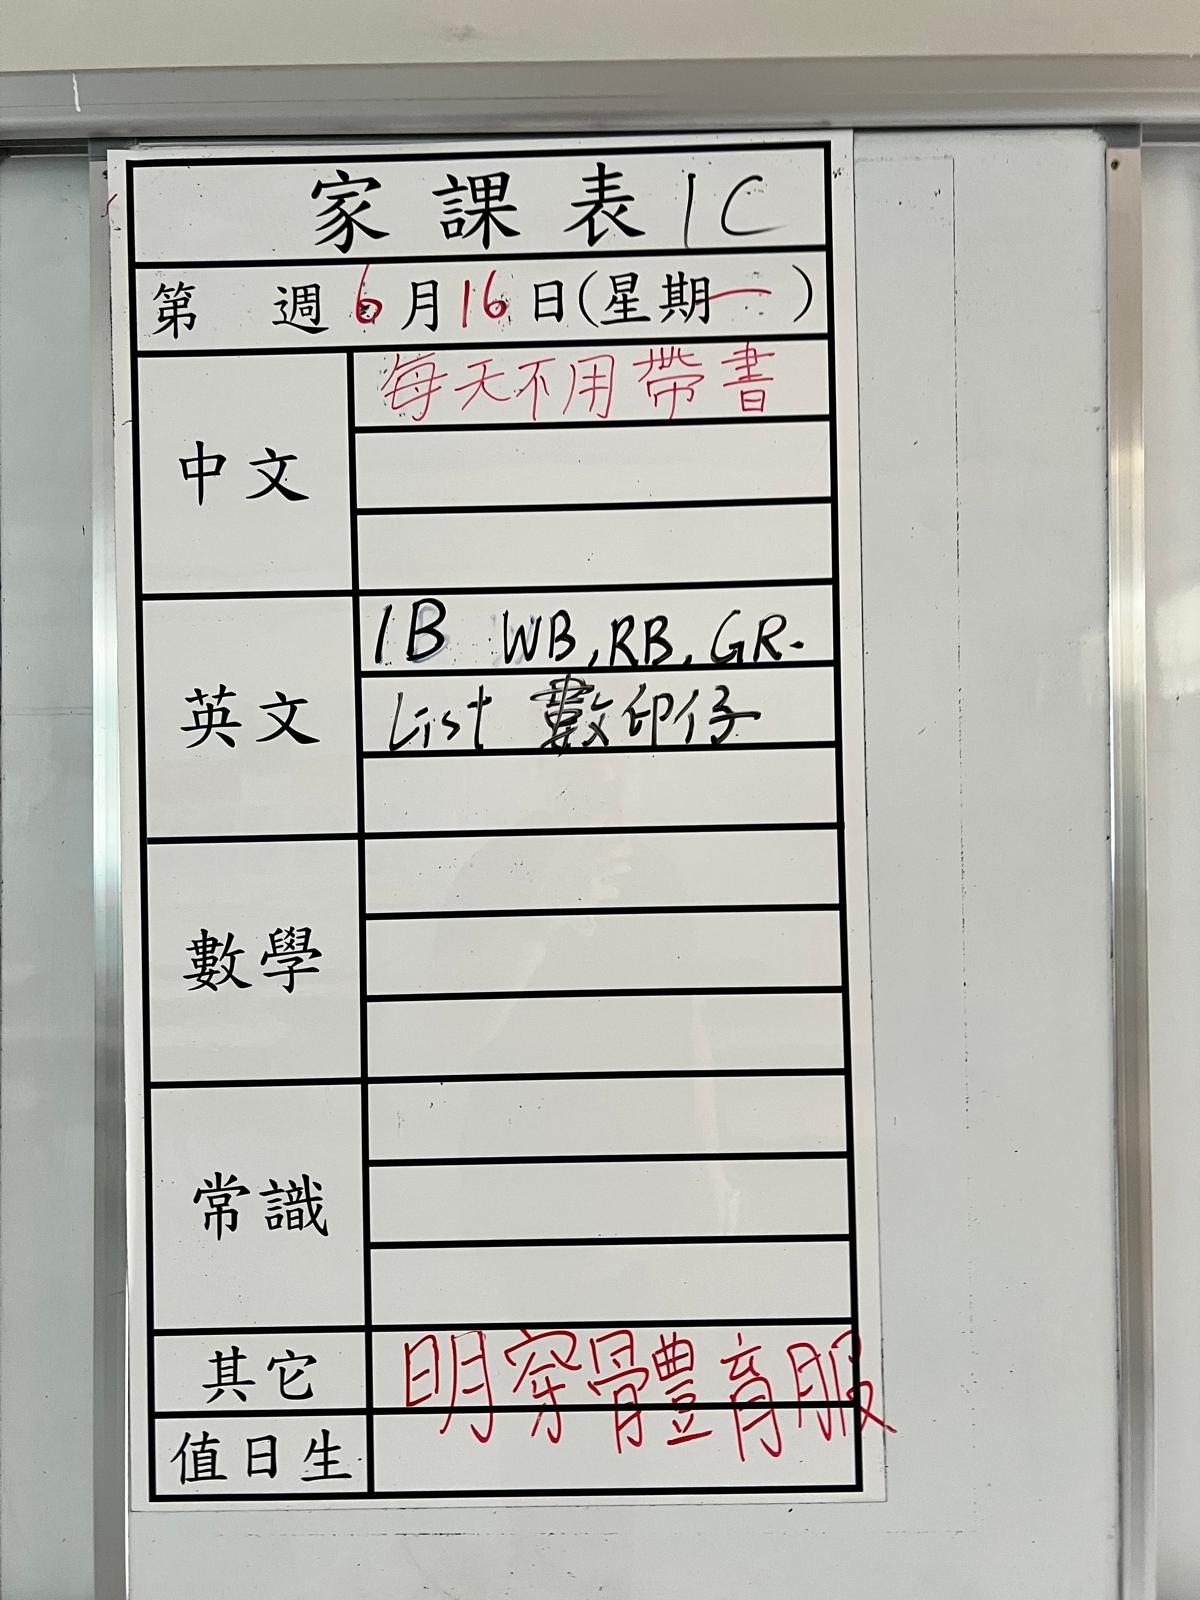 家課表 1C
第 週 6月16日(星期一)
中文
每天不用帶書
英文
1B WB, RB, GR.
List 數印仔
數學
常識
其它
明穿體育服
值日生